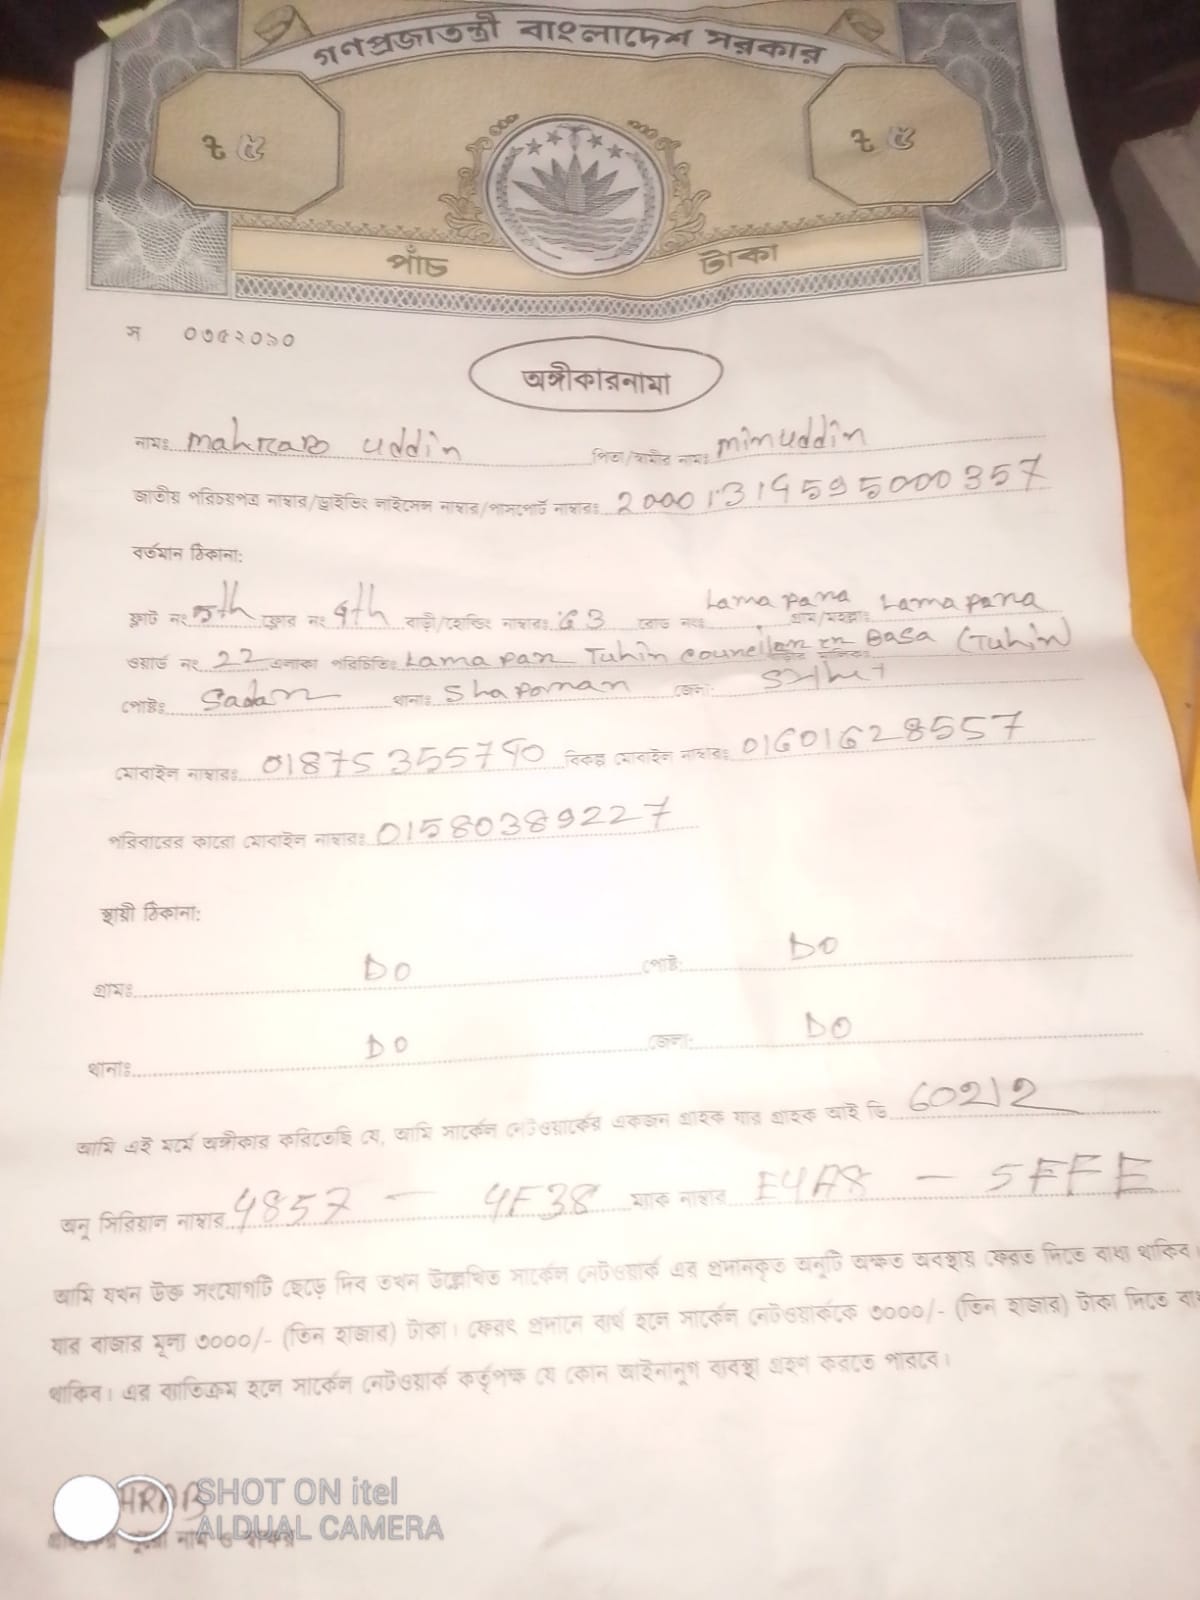 গণপ্রজাতন্ত্রী বাংলাদেশ সরকার
৳ ৫ ৳ ৫
পাঁচ টাকা
স ০৩৫২০৯০
অঙ্গীকারনামা
নামঃ Mahrab uddin পিতা/স্বামীর নামঃ minuddin
জাতীয় পরিচয়পত্র নাম্বার/ড্রাইভিং লাইসেন্স নাম্বার/পাসপোর্ট নাম্বারঃ 20001314595000357
বর্তমান ঠিকানা:
ফ্লাট নং 5th ফ্লোর নং 4th বাড়ী/হোল্ডিং নাম্বারঃ G3 রোড নংঃ Lama para গ্রাম/মহল্লাঃ Lama para
ওয়ার্ড নং 22 এলাকা পরিচিতিঃ Lama par Tuhin Basa (Tuhin)
পোষ্টঃ Sadar থানাঃ Shaporan জেলা:
মোবাইল নাম্বারঃ 01875355740 বিকল্প মোবাইল নাম্বারঃ 01601628557
পরিবারের কারো মোবাইল নাম্বারঃ 01580389227
স্থায়ী ঠিকানা:
গ্রামঃ DO পোষ্ট: DO
থানাঃ DO জেলা: DO
আমি এই মর্মে অঙ্গীকার করিতেছি যে, আমি সার্কেল নেটওয়ার্কের একজন গ্রাহক যার গ্রাহক আই ডি 60212
অনু সিরিয়াল নাম্বার 4857 — 4F38 ম্যাক নাম্বার E4A8 — 5FFE
আমি যখন উক্ত সংযোগটি ছেড়ে দিব তখন উল্লেখিত সার্কেল নেটওয়ার্ক এর প্রদানকৃত অনুটি অক্ষত অবস্থায় ফেরত দিতে বাধ্য থাকিব।
যার বাজার মূল্য ৩০০০/- (তিন হাজার) টাকা। ফেরৎ প্রদানে ব্যর্থ হলে সার্কেল নেটওয়ার্ককে ৩০০০/- (তিন হাজার) টাকা দিতে
থাকিব। এর ব্যতিক্রম হলে সার্কেল নেটওয়ার্ক কর্তৃপক্ষ যে কোন আইনানুগ ব্যবস্থা গ্রহণ করতে পারবে।
SHOT ON itel
DUAL CAMERA